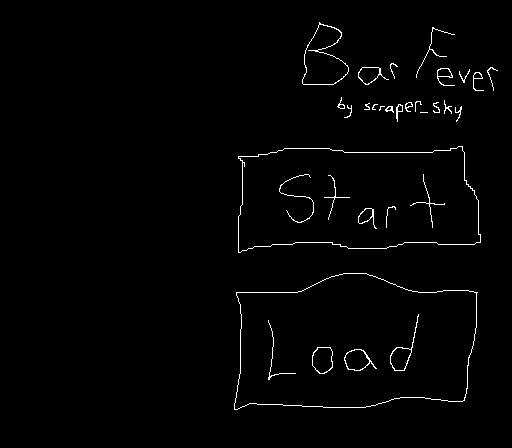 Bar Fever
by scraper_sky
Start
Load